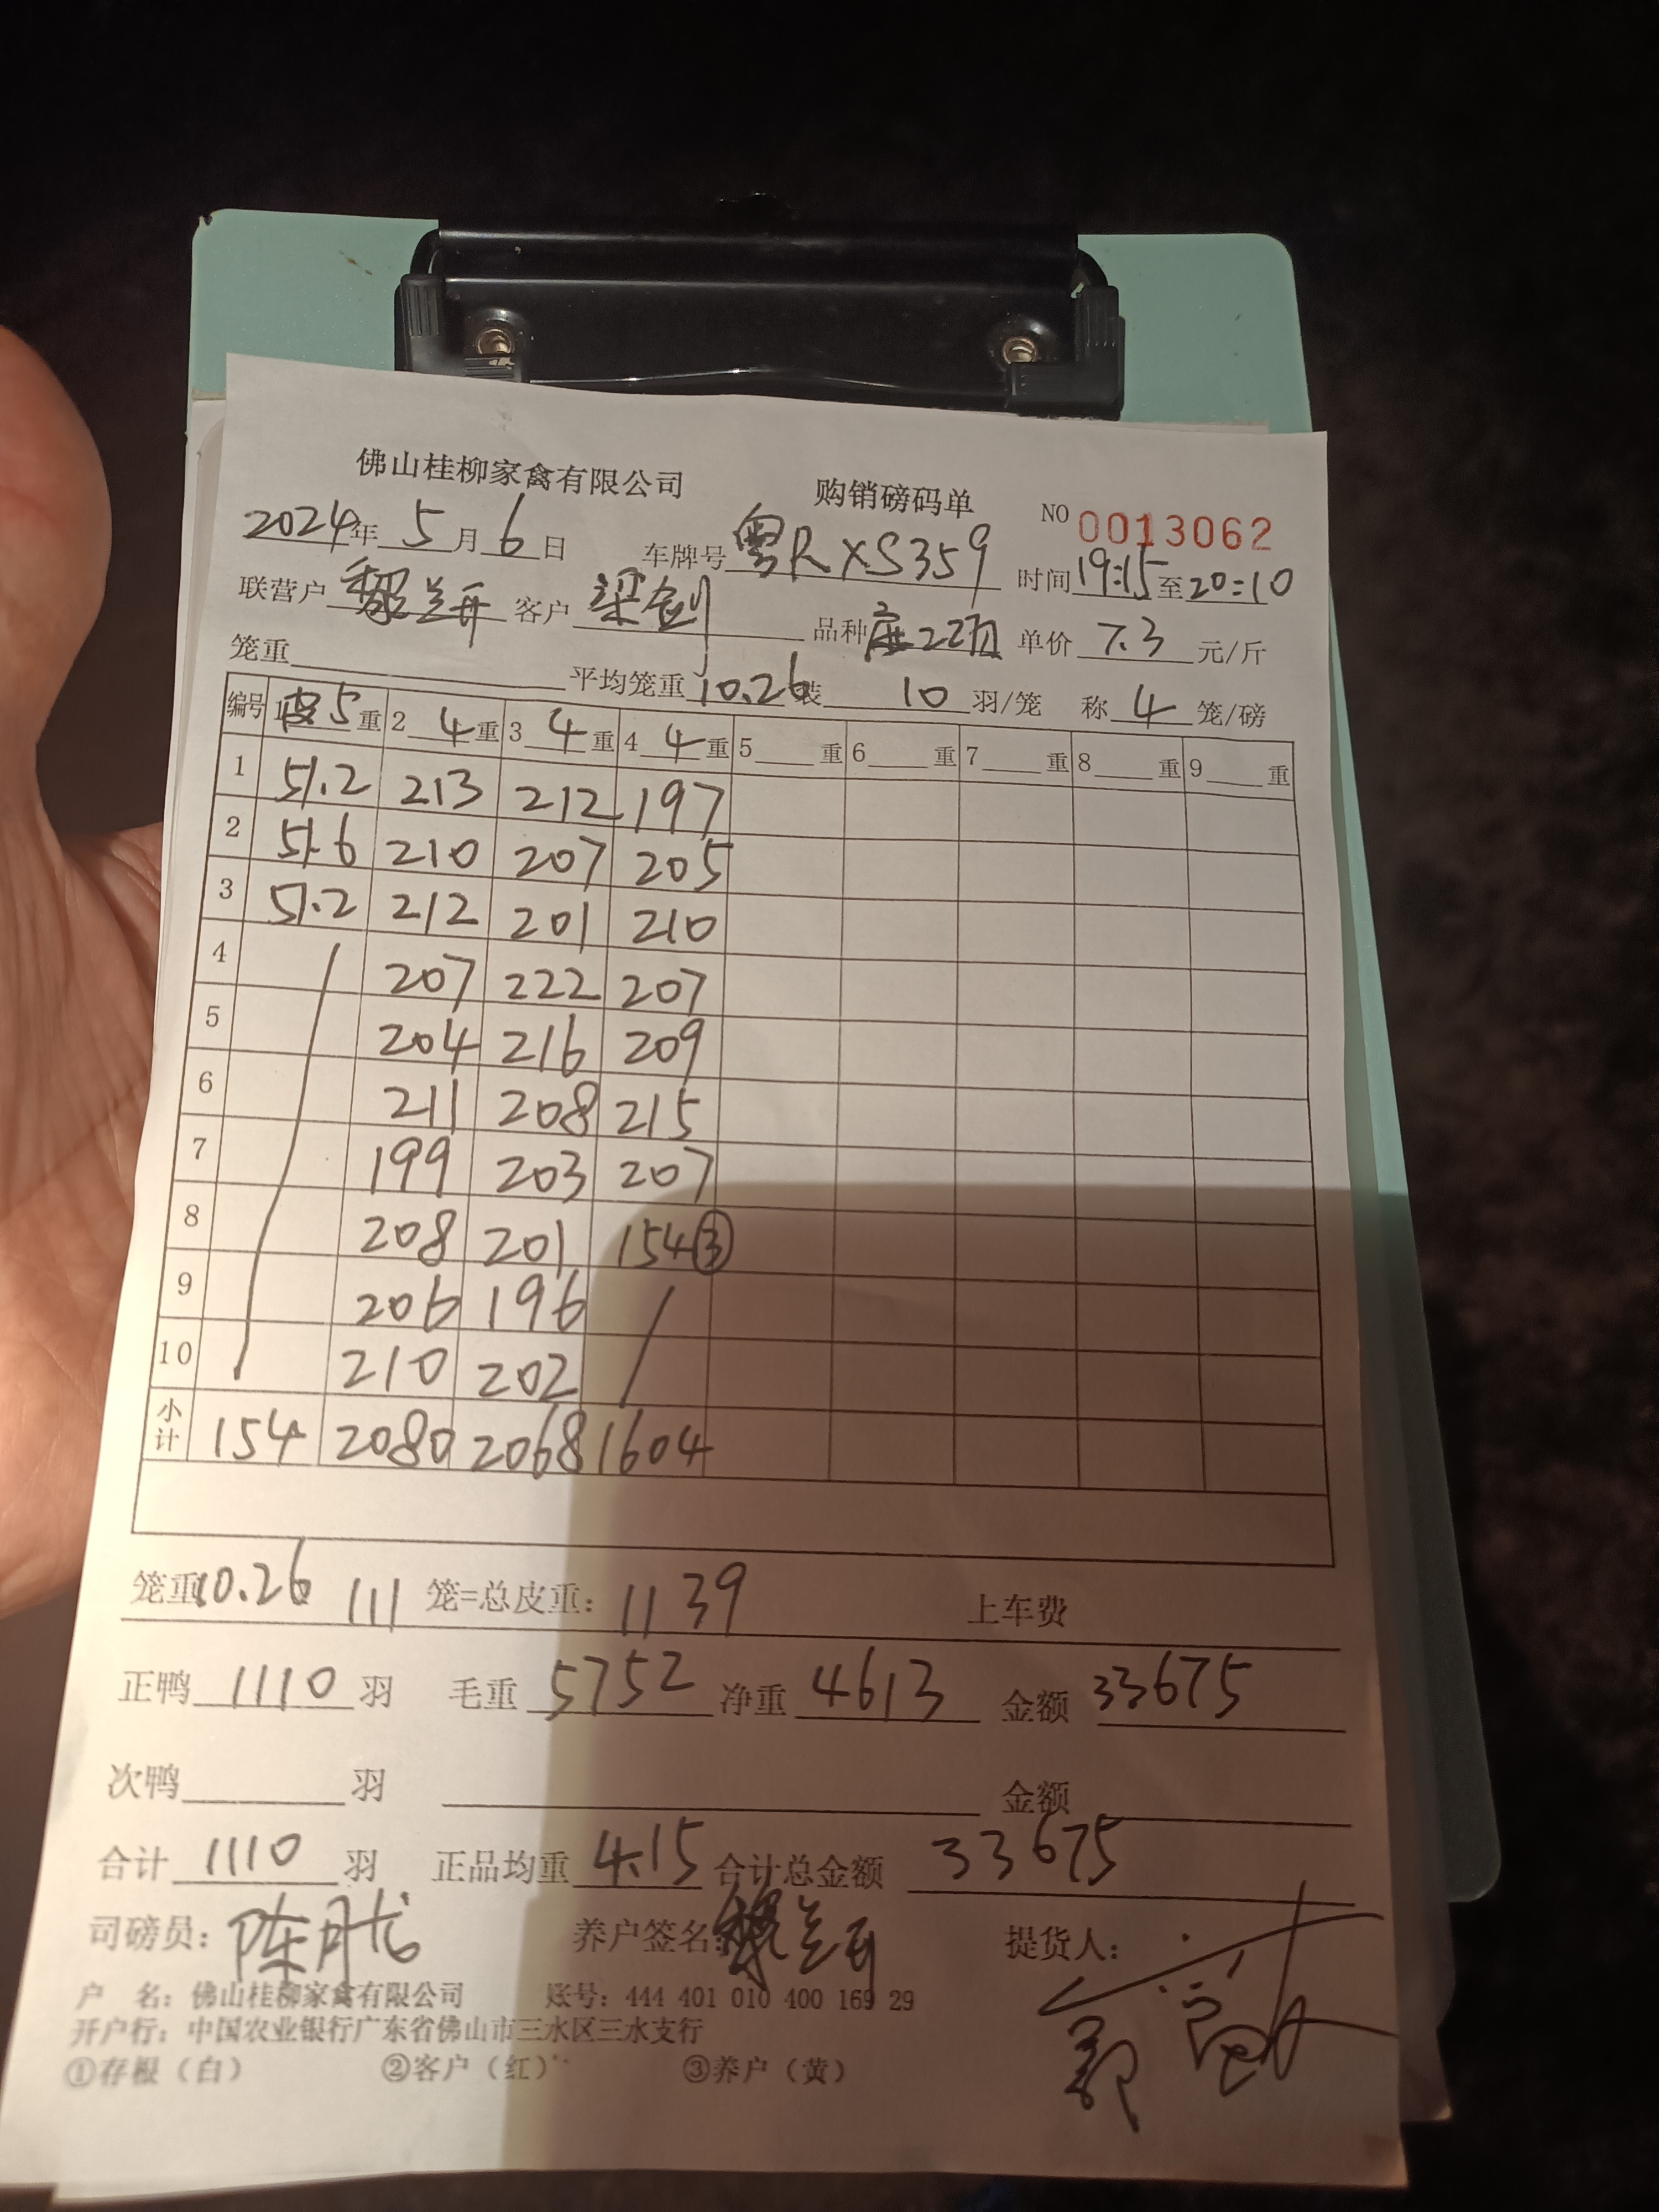 佛山桂柳家禽有限公司 购销磅码单 NO 0013062
2024年 5 月 6 日 车牌号 粤RXS359 时间 19:15 至 20:10
联营户 黎兰开 客户 梁剑 品种 单价 7.3 元/斤
笼重 平均笼重 10.26 装 10 羽/笼 称 4 笼/磅
编号 1 皮5 重 2 4 重 3 4 重 4 4 重 5 重 6 重 7 重 8 重 9 重
1 51.2 213 212 197
2 51.6 210 207 205
3 51.2 212 201 210
4 207 222 207
5 204 216 209
6 211 208 215
7 199 203 207
8 208 201 154③
9 206 196
10 210 202
小计 154 2080 2068 1604
笼重 10.26 111 笼=总皮重: 1139 上车费
正鸭 1110 羽 毛重 5752 净重 4613 金额 33675
次鸭 羽 金额
合计 1110 羽 正品均重 4.15 合计总金额 33675
司磅员: 陈月龙 养户签名: 黎兰开 提货人:
户 名: 佛山桂柳家禽有限公司 账号: 444 401 010 400 169 29
开户行: 中国农业银行广东省佛山市三水区三水支行
①存根（白） ②客户（红） ③养户（黄）